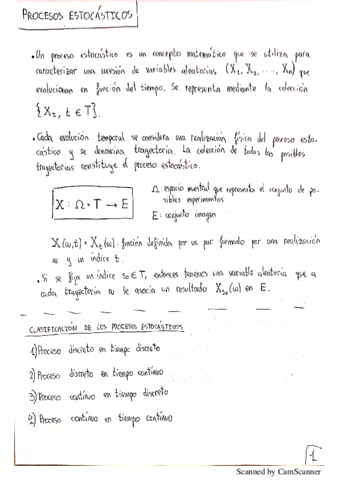 PROCESOS ESTOCÁSTICOS
• Un proceso estocástico es un concepto matemático que se utiliza para
caracterizar una sucesión de variables aleatorias (X₁, X₂, ..., Xn) que
evolucionan en función del tiempo. Se representa mediante la colección
{Xt, t ∈ T}.
• Cada evolución temporal se considera una realización física del proceso esto-
cástico y se denomina trayectoria. La colección de todas las posibles
trayectorias constituye el proceso estocástico.
X : Ω × T → E
Ω: espacio muestral que representa el conjunto de po-
sibles experimentos
E: conjunto imagen
X(ω,t) = Xt(ω): función definida por un par formado por una realización
ω y un índice t.
• Si se fija un índice s₀ ∈ T, entonces tenemos una variable aleatoria que a
cada trayectoria ω le asocia un resultado Xs₀(ω) en E.
CLASIFICACIÓN DE LOS PROCESOS ESTOCÁSTICOS
1) Proceso discreto en tiempo discreto
2) Proceso discreto en tiempo continuo
3) Proceso continuo en tiempo discreto
4) Proceso continuo en tiempo continuo
1
Scanned by CamScanner